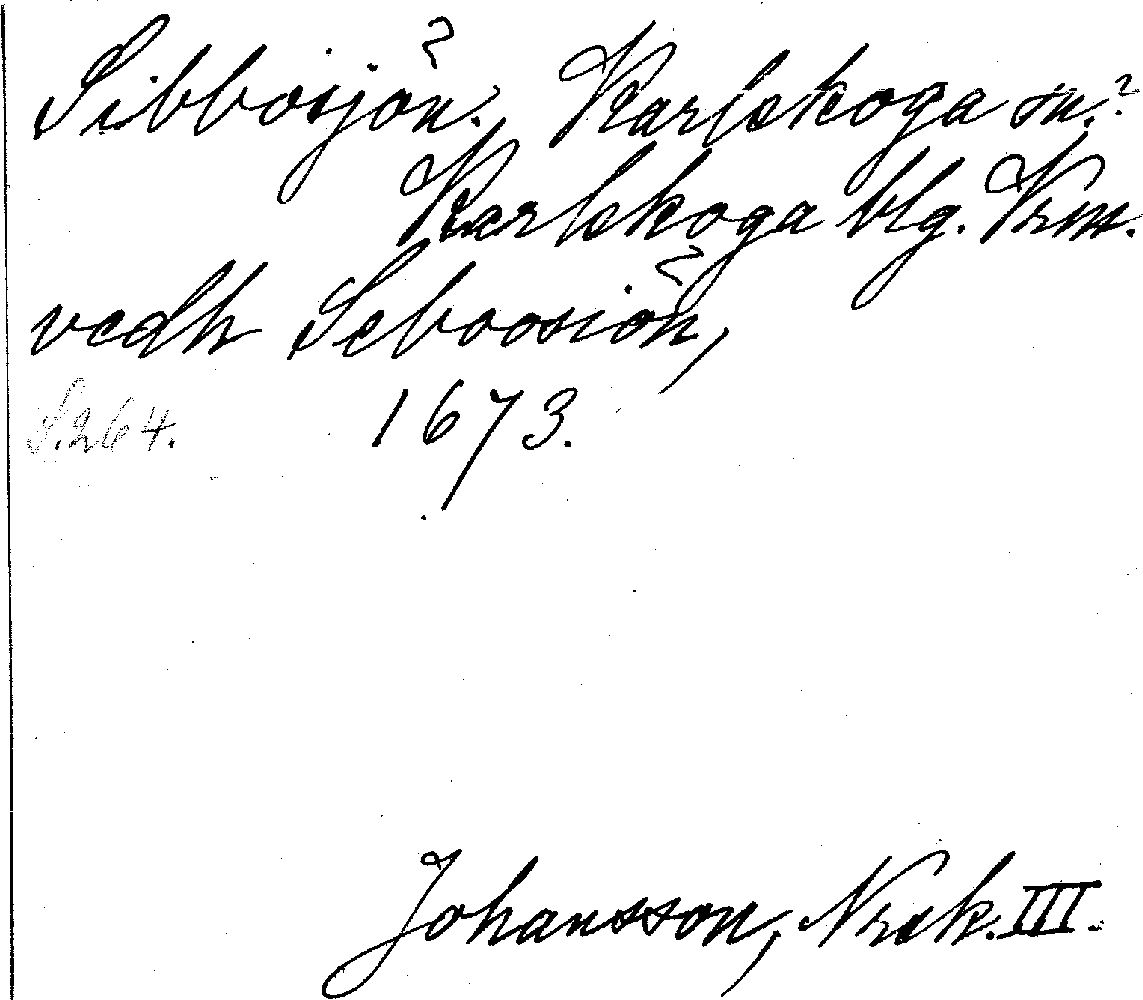 Sibbosjön. Karlskoga sn.?
Karlskoga blg. Vrm.
vedh Seboosiön,
S. 264. 1673.
Johansson, Nrck. III.